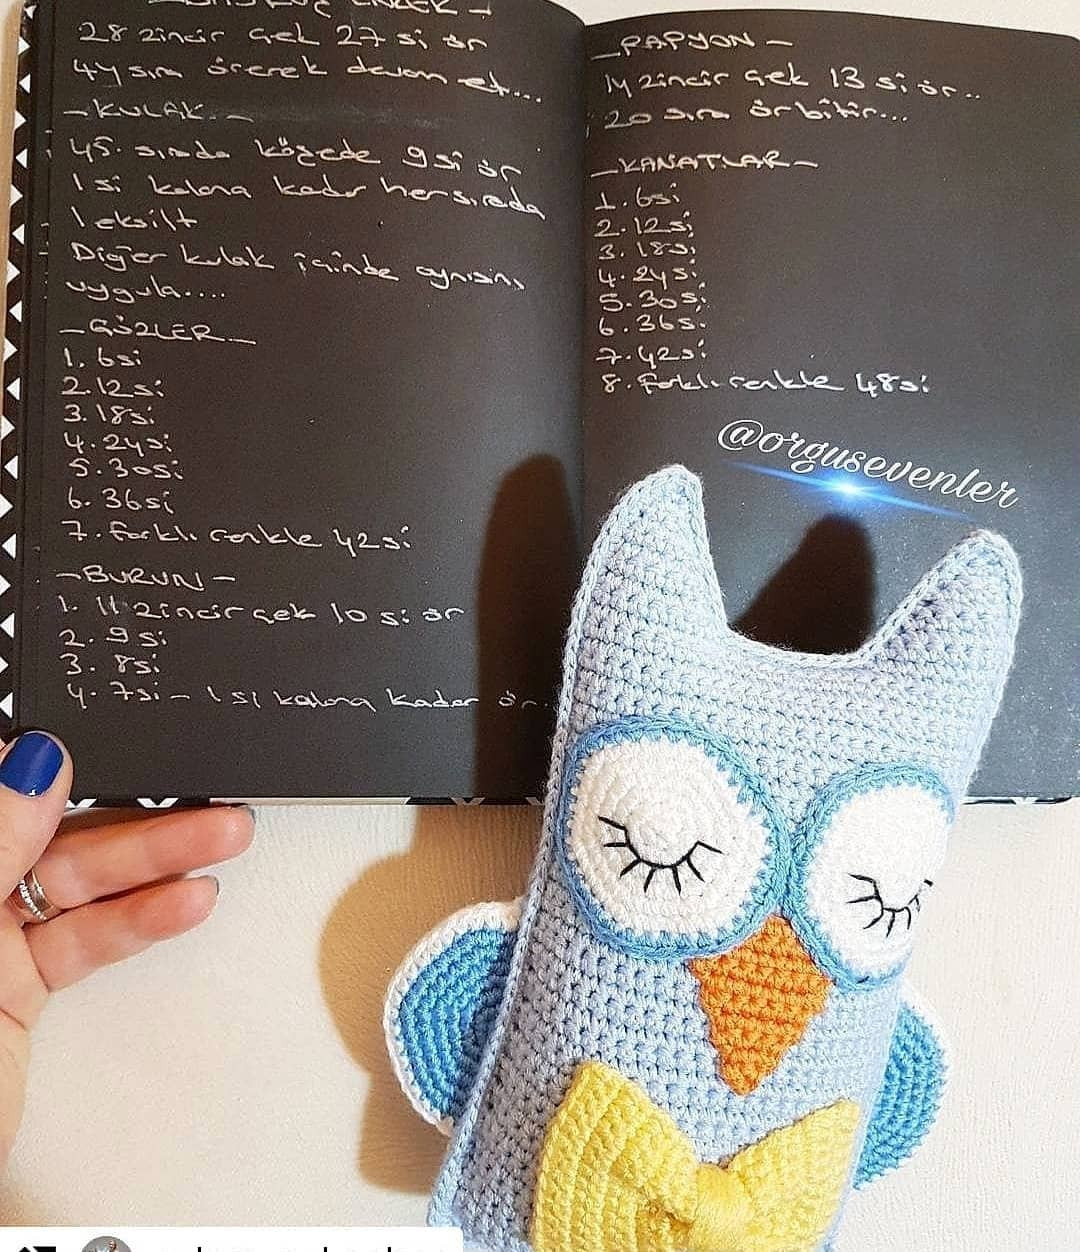 28 zincir çek 27 si ör
44 sıra örerek devam et...
- KULAK -
45. sırada köşede 9 si ör
1 si kalana kadar her sırada
1 eksilt
Diğer kulak içinde aynısını
uygula....
- GÖZLER -
1. 6si
2. 12si
3. 18si
4. 24si
5. 30si
6. 36si
7. farklı renkle 42si
- BURUN -
1. 11 zincir çek 10 si ör
2. 9 si
3. 8si
4. 7si - 1 si kalana kadar ör.
- PAPYON -
14 zincir çek 13 si ör..
20 sıra ör bitir...
- KANATLAR -
1. 6si
2. 12si
3. 18si
4. 24si
5. 30si
6. 36si
7. 42si
8. farklı renkle 48si
@orgusevenler